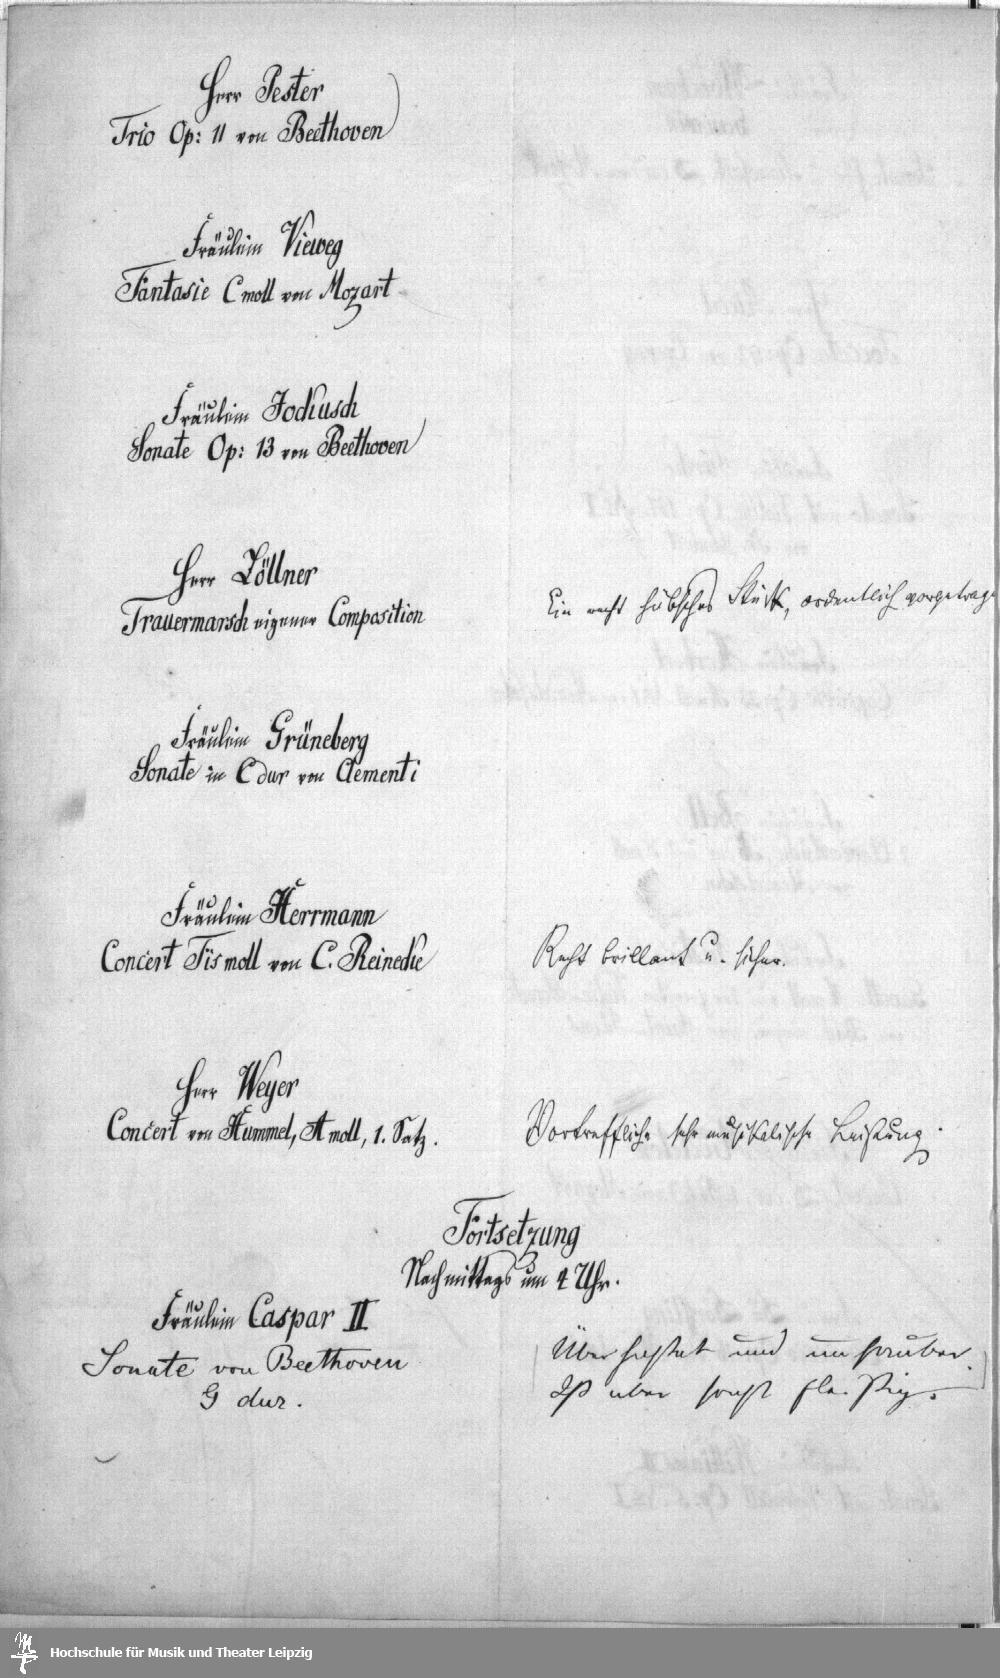 Herr Pester
Trio Op: 11 von Beethoven
Fräulein Vieweg
Fantasie C moll von Mozart
Fräulein Jockusch
Sonate Op: 13 von Beethoven
Herr Zöllner
Trauermarsch eigener Composition
Ein recht hübsches Stück, ordentlich vorgetrage
Fräulein Grüneberg
Sonate in C dur von Clementi
Fräulein Herrmann
Concert Fis moll von C. Reinecke
Recht brillant u. sicher.
Herr Weyer
Concert von Hummel, A moll, 1. Satz.
Vortreffliche sehr musikalische Leistung.
Fortsetzung
Nachmittags um 4 Uhr.
Fräulein Caspar II
Sonate von Beethoven
G dur.
Überhastet und unsauber.
Ist aber sonst fleißig.
Hochschule für Musik und Theater Leipzig